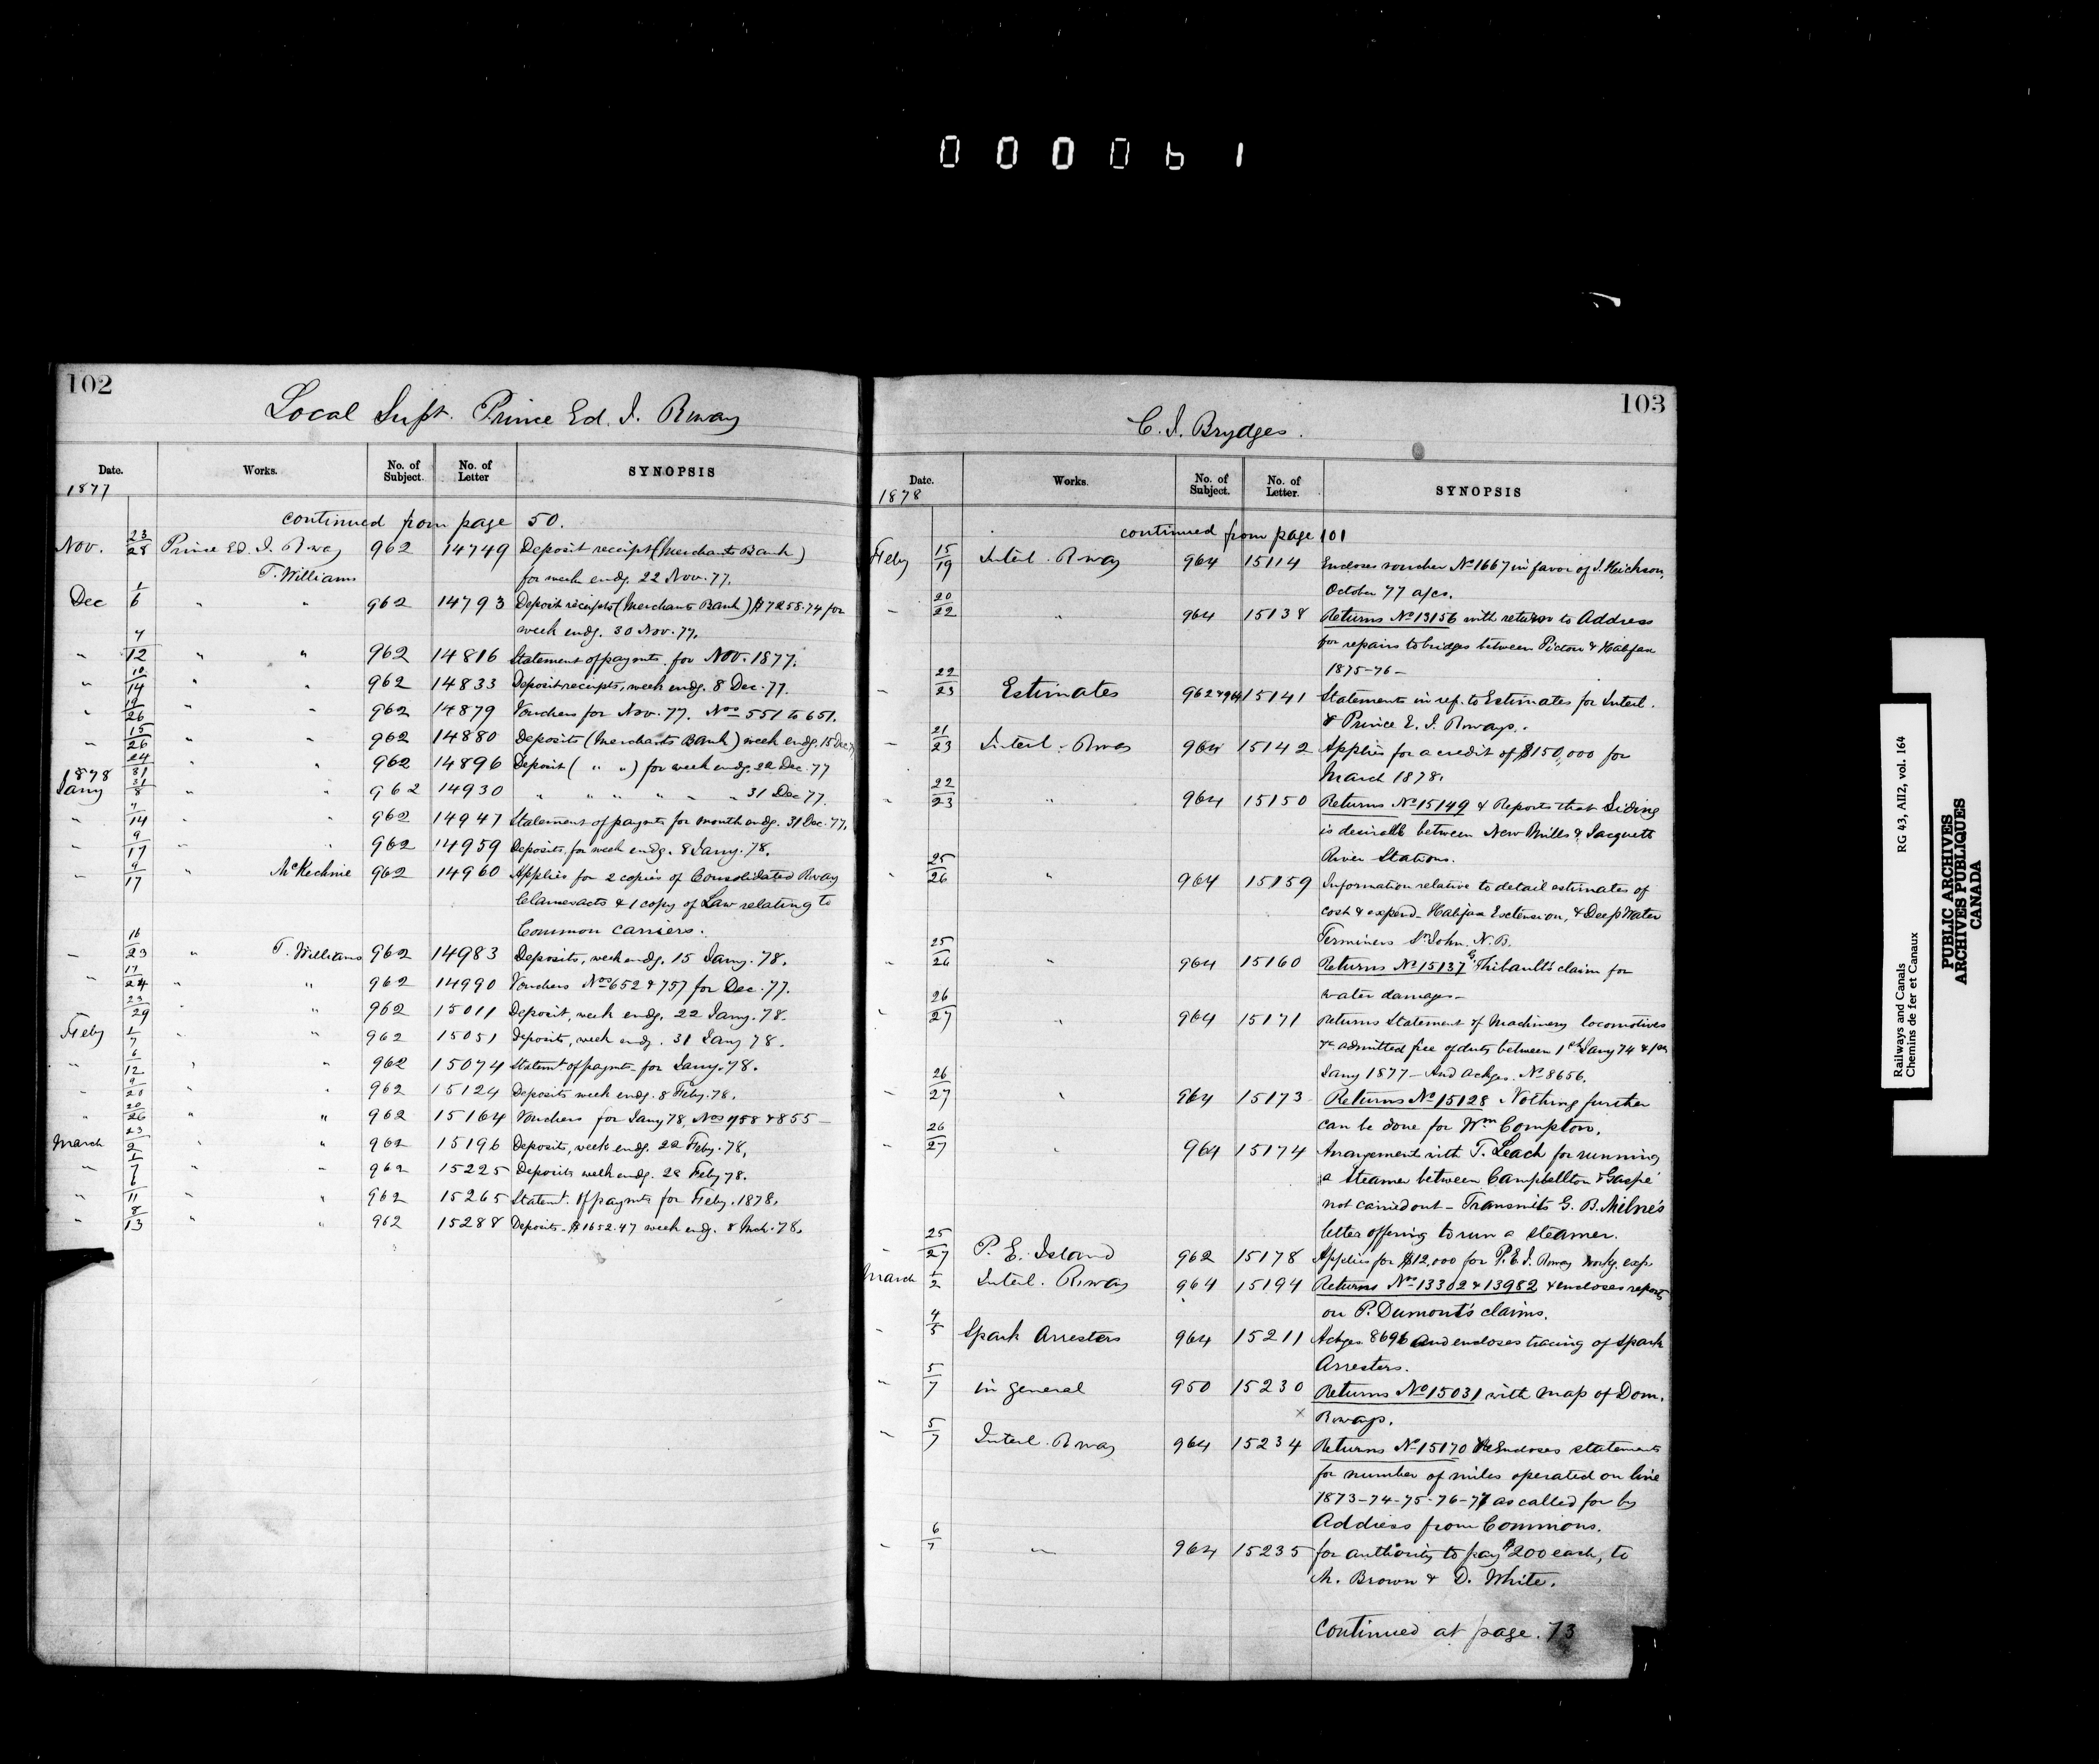 000061
102
Local Supt. Prince Ed. I. Rway
Date. Works. No. of Subject. No. of Letter SYNOPSIS
1877
continued from page 50.
Nov. 23/28 Prince Ed. I. Rway 962 14749 Deposit receipt (Merchants Bank)
T. Williams for week endg. 22 Nov. 77.
Dec 1/6 " " 962 14793 Deposit receipts (Merchants Bank) $7258.74 for
week endg. 30 Nov. 77.
" 4/12 " " 962 14816 Statement of paymts. for Nov. 1877.
" 10/14 " " 962 14833 Deposit receipts, week endg. 8 Dec. 77.
" 19/26 " " 962 14879 Vouchers for Nov. 77. Nos 551 to 651.
" 15/26 " " 962 14880 Deposits (Merchants Bank) week endg. 15 Dec 77
" 24/31 " " 962 14896 Deposit ( " " ) for week endg. 22 Dec. 77
1878
Jany 31/8 " " 962 14930 " " " " " " " 31 Dec 77.
" 7/14 " " 962 14947 Statement of paymts for month endg. 31 Dec. 77.
" 9/17 " " 962 14959 Deposits, for week endg. 8 Jany. 78.
" 9/17 " McKechnie 962 14960 Applies for 2 copies of Consolidated Rway
Clauses acts & 1 copy of Law relating to
Common carriers.
" 16/23 " T. Williams 962 14983 Deposits, week endg. 15 Jany. 78.
" 17/24 " " 962 14990 Vouchers Nos 652 & 757 for Dec. 77.
23/29 " " 962 15011 Deposit, week endg. 22 Jany. 78.
Feby 1/7 " " 962 15051 Deposits, week endg. 31 Jany 78.
" 6/12 " " 962 15074 Statemt. of paymts. for Jany. 78.
" 9/20 " " 962 15124 Deposits week endg. 8 Feby. 78.
" 20/26 " " 962 15164 Vouchers for Jany 78, Nos 758 & 855 —
March 23/2 " " 962 15196 Deposits, week endg. 22 Feby. 78.
" 1/7 " " 962 15225 Deposits week endg. 28 Feby 78.
" 6/11 " " 962 15265 Statemt. of paymts for Feby. 1878.
" 8/13 " " 962 15288 Deposits. $1652.47 week endg. 8 Mch. 78.
103
C. J. Brydges.
Date. Works. No. of Subject. No. of Letter. SYNOPSIS
1878
continued from page 101
Feby 15/19 Intercl. Rway 964 15114 Encloses voucher No 1667 in favor of J. Hickson,
October 77 a/cs.
" 20/22 " 964 15138 Returns No 13156 with return to Address
for repairs to bridges between Pictou & Halifax
1875-76 —
" 22/23 Estimates 962 & 964 15141 Statements in ref. to Estimates for Intercl.
& Prince E. I. Rways.
" 21/23 Intercl. Rway 964 15142 Applies for a credit of $150,000 for
March 1878.
" 22/23 " 964 15150 Returns No 15149 & Reports that Siding
is desirable between New Mills & Jacquett
River Stations.
" 25/26 " 964 15159 Information relative to detail estimates of
cost & expend- Halifax Extension, & Deep Water
Terminus St John. N. B.
" 25/26 " 964 15160 Returns No 15137 G. Thibault's claim for
water damages —
" 26/27 " 964 15171 Returns Statement of Machinery locomotives
&c admitted free of duty between 1st Jany 74 & 1st
Jany 1877 — And ackges. No 8656.
" 26/27 " 964 15173 Returns No 15128 Nothing further
can be done for Wm Compton.
" 26/27 " 964 15174 Arrangement with T. Leach for running
a Steamer between Campbellton & Gaspé
not carried out — Transmits G. B. Milne's
letter offering to run a steamer.
" 25/27 P. E. Island 962 15178 Applies for $12,000 for P. E. I. Rway workg. exp.
March 1/2 Intercl. Rway 964 15194 Returns Nos 13302 & 13982 & encloses reports
on P. Dumont's claims.
" 4/5 Spark Arresters 964 15211 Ackges. 8696 and encloses tracing of spark
Arresters.
" 5/7 in general 950 15230 Returns No 15031 with map of Dom.
x Rways.
" 5/7 Intercl. Rway 964 15234 Returns No 15170 & Encloses statement
for number of miles operated on line
1873-74-75-76-77 as called for by
Address from Commons.
" 6/7 " 964 15235 for authority to pay $200 each, to
M. Brown & D. White.
Continued at page. 73
Railways and Canals RG 43, AII2, vol. 164
Chemins de fer et Canaux
PUBLIC ARCHIVES
ARCHIVES PUBLIQUES
CANADA